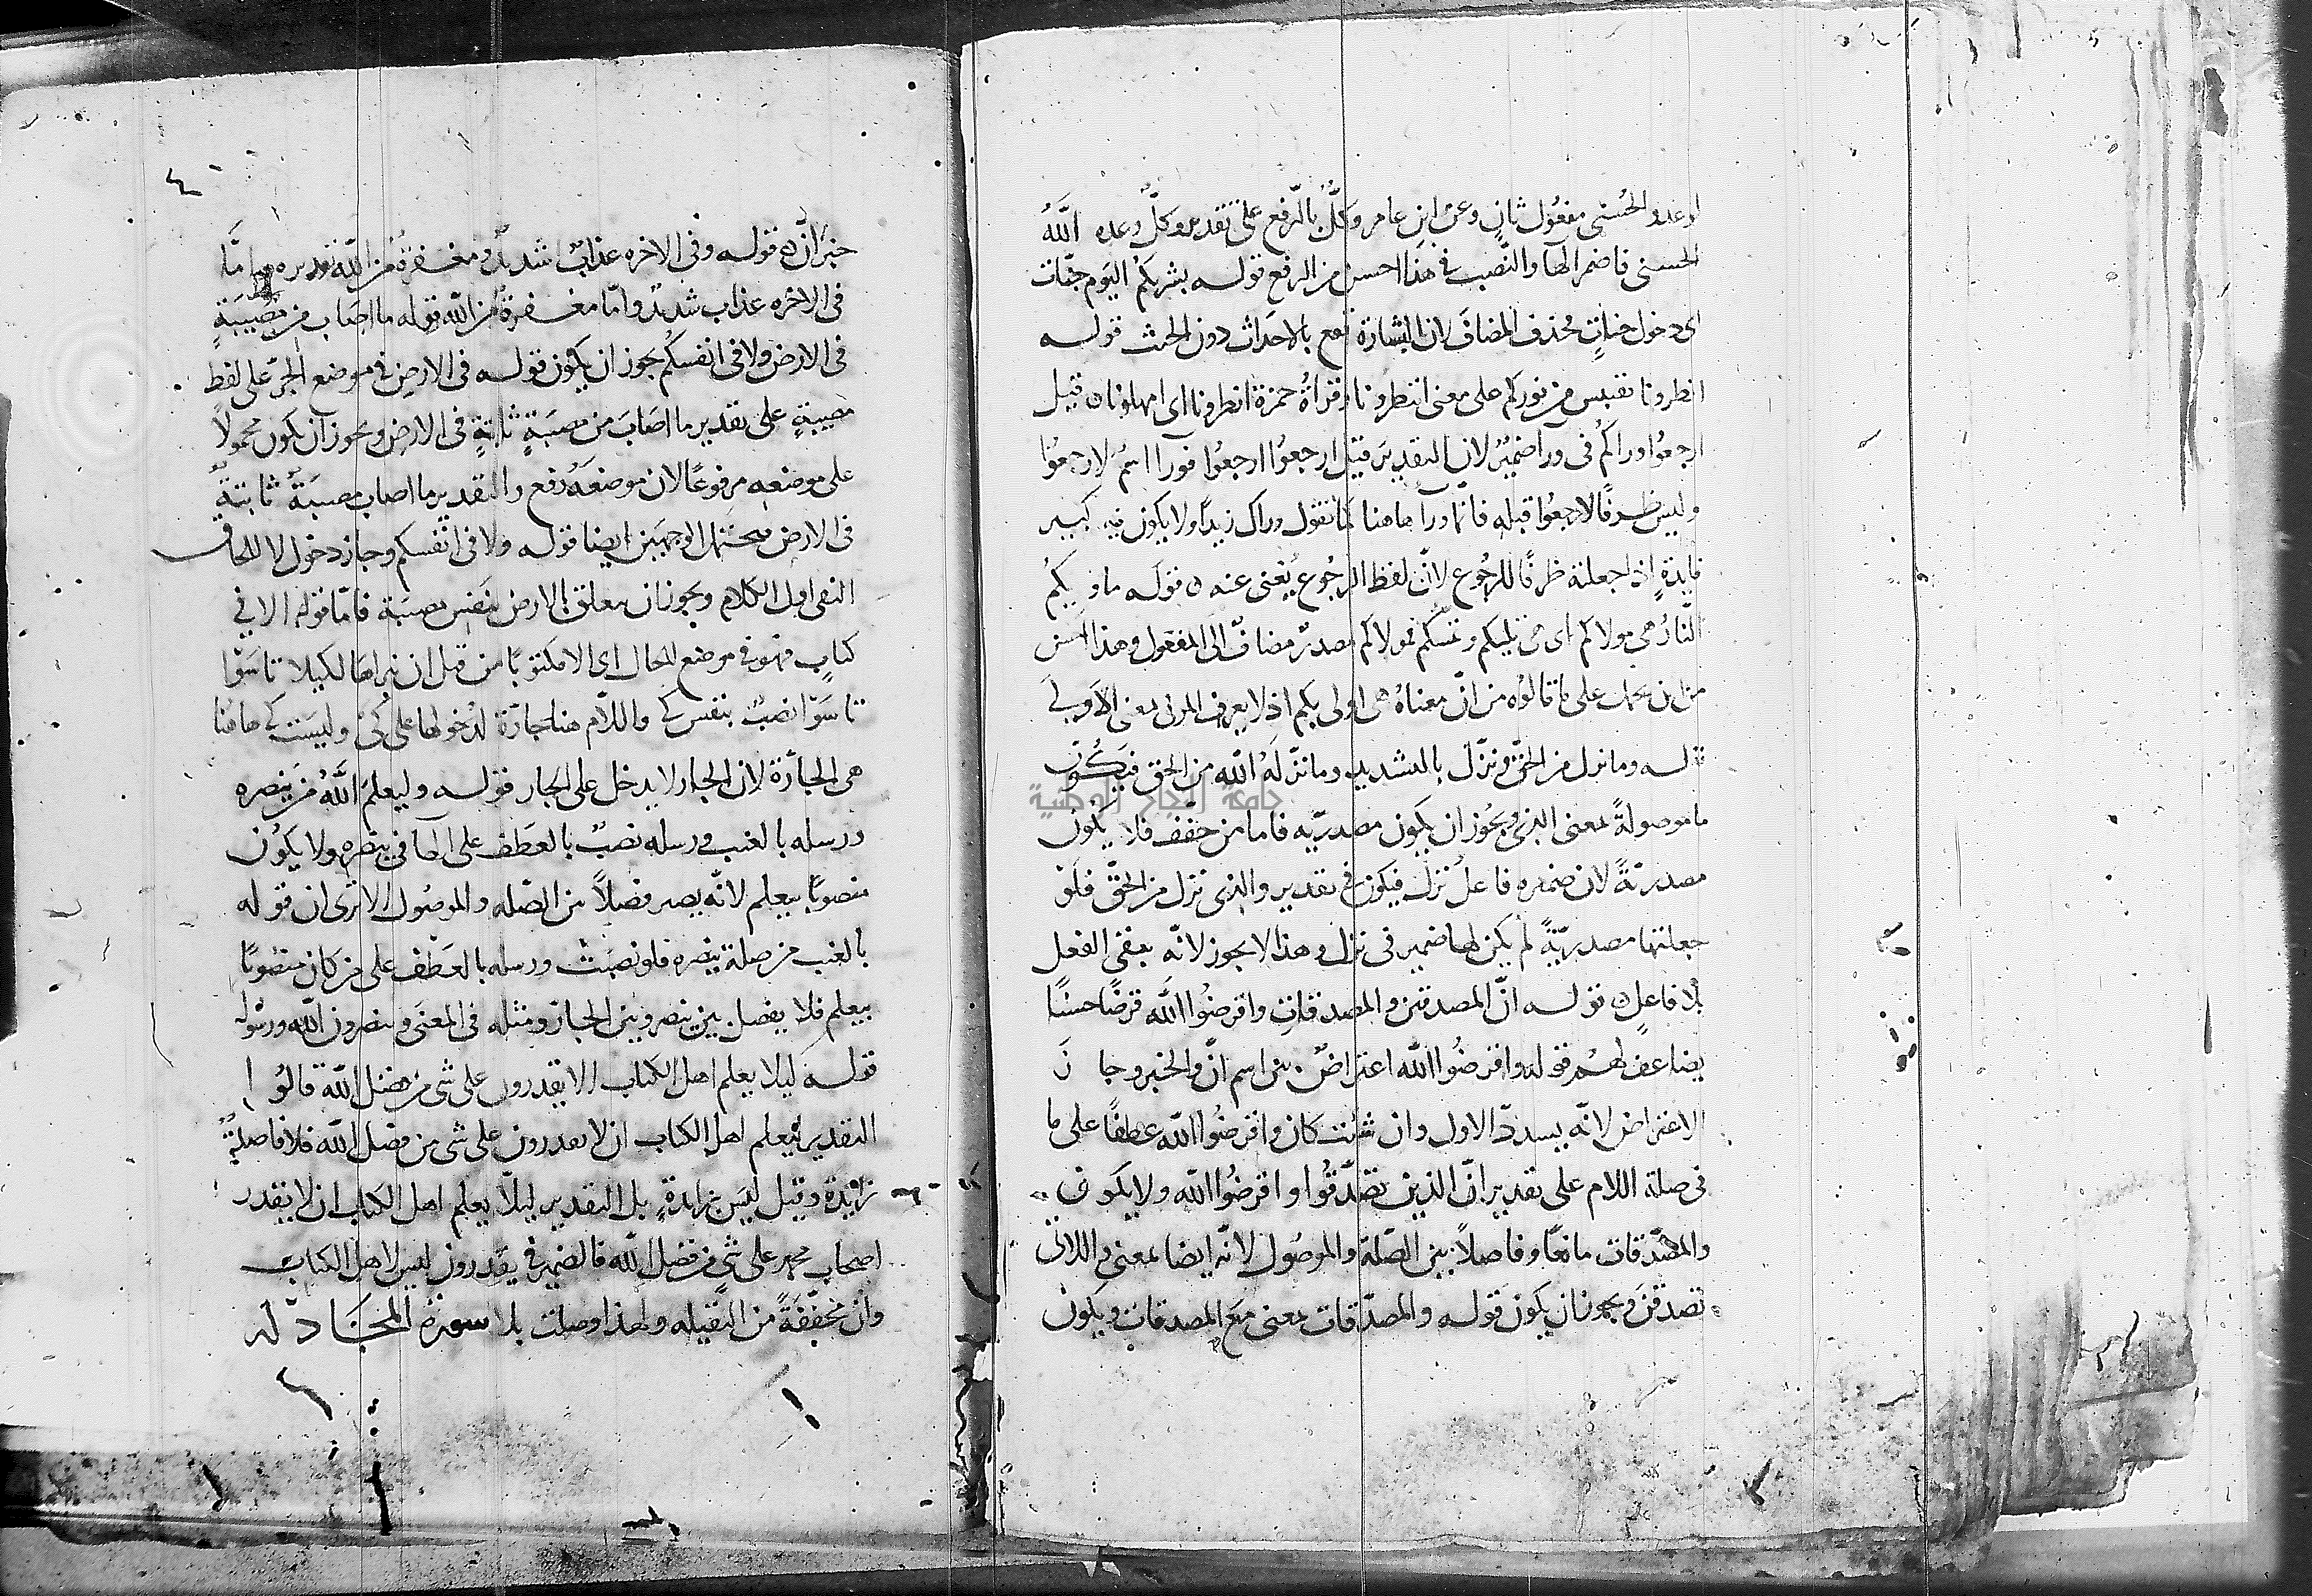 لوعد والحُسنى مفعُول ثانٍ وعن ابن عامر وكلٌّ بالرّفع على تقدير وكلٌّ وعده اللهُ
الحسنى فاضمر الهآ والنّصب في هذا احسن من الرفع قوله بشريكم اليوم جنّات
اى دخول جناتٍ فحذف المضافَ لان البشارة تقع بالاحَداث دون الجثث قوله
انظرونا نقتبس من نوركم على معنى انتظرونا وقراةُ حمزة انظرونا اى امهلونا ن قيل
ارجعُوا وراكُم فى ورآ ضميرٌ لان التقديرَ قيل ارجعوُا ارجعُوا فورا اسمٌ لارجعوُا
وليس ظرفًا لارجعُوا قبله فانّما ورآ هاهنا كما تقول وراك زيداً ولا يكون فيه كبير
فايدةٍ اذا جعلته ظرفًا للرجُوع لانّ لفظ الرجُوع يُغنى عنه ن قوله ماويكمُ
النَّارُ هى مولاكم اى هى تليكم وتمسّكم فمولاكم مصدرٌ مضافٌ الى المفعول وهذا احسن
من ان يحمل على ما قالوُه من انّ معناهُ هى اولى بكم اذ لا يعرف المولى بمعنى الاَولى
قوله وما نزل من الحقّ ونزّل بالتشديد وما نزّلهُ الله من الحق فيَكُون
ما موصولةً بمعنى الذى ويجُوز ان يكون مصدريّه فاما من خفّف فلا يكون
مصدريّةً لان ضميره فاعل نزل فيكون فى تقدير والذى نزل من الحقّ فلوْ
جعلتها مصدريّةً لم يكن لها ضمير فى نزل وهذا لا يجوز لانّه يبقى الفعل
بلا فاعلٍ ن قوله انّ المصدقين والمصدقاتِ واقرضُوا الله قرضًا حسنًا
يضاعف لهُم فقوله واقرضُوا الله اعتراضٌ بين اسم انّ والخبر وجازَ
الاعتراض لانّه يسدد الاول وان شئت كان واقرضُوا الله عطفًا على ما
فى صلة اللام على تقدير انّ الذين تصَّدَّقُوا واقرضُوا الله ولا يكون
والمصّدّقات مانعًا وفاصلاً بين الصّلة والموصُول لانّه ايضا بمعنى واللاتى
تصدقنَ ويجوز ان يكون قوله والمصدّقات بمعنى مع المصدقات ويكون
خبرَ انّ ن قوله وفى الاخره عذابٌ شديدٌ ومغفرةٌ من الله تقديره اِمَّا
فى الاخره عذاب شديدٌ وامّا مغفرةٌ من الله قوله ما اصَاب من مُصيبَةٍ
فى الارض ولا فى انفسكُم يجوز ان يكون قوله فى الارضِ فى موضع الجرّ على لفظ
مصيبةٍ على تقدير ما اصَابَ من مصيبَةٍ ثابتةٍ فى الارض ويجوز ان يكون محمُولاً
على موضعِه مرفوعًا لان موضعَهُ رفع والتقدير ما اصاب مصيبَةٌ ثابتةٌ
فى الارض فيحتمل الوجهَين ايضا قوله ولا فى انفسكم وجاز دخول لا للحاق
النفى اول الكلام ويجوز ان يتعلق الارض بنفس مصيبَة فامّا قوله الا في
كتابٍ فهو في موضع الحال اى الا مكتوبًا من قبل ان نبراهَا لكيلا تاسَوْا
تاسَوْا نصبٌ بنفس كى واللاّم هنا جارّة لدخولها على كى وليسَت كى هاهُنا
هى الجارّة لان الجار لا يدخل على الجار قوله وليعلمَ اللهُ من ينصره
ورسله بالغيب ورسله نصبٌ بالعَطف على الهآ فى ينصره ولا يكوُن
منصوبًا بيعلم لانّه يصير فصلاً بين الصّله والموصُول الا ترى ان قوله
بالغيب من صلة ينصره فلو نصبْتَ ورسله بالعَطْف على من كان منصُوبًا
بيعلم فلا يفصل بين ينصر وبين الجارّ ومثله فى المعنَى وينصرون الله ورسُوله
قوله لِيلا يعلم اهل الكتاب الا يقدرون على شى من فضل الله قالُوا
التقدير ليعلم اهل الكتاب ان لا يقدرون على شى من فضل الله فلا فاصلةٌ
زايدة وقيل ليس بزايدةٍ بل التقدير ليلاّ يعلم اهل الكتاب ان لا يقدر
اصحاب محمد على شىٍ من فضل الله فالضمير فى يقدرون ليس لاهل الكتاب
وان مخفّفَةٌ من الثقيله ولهذا وصلت بلا سورة المجَادله
جامعة النجاح الوطنية